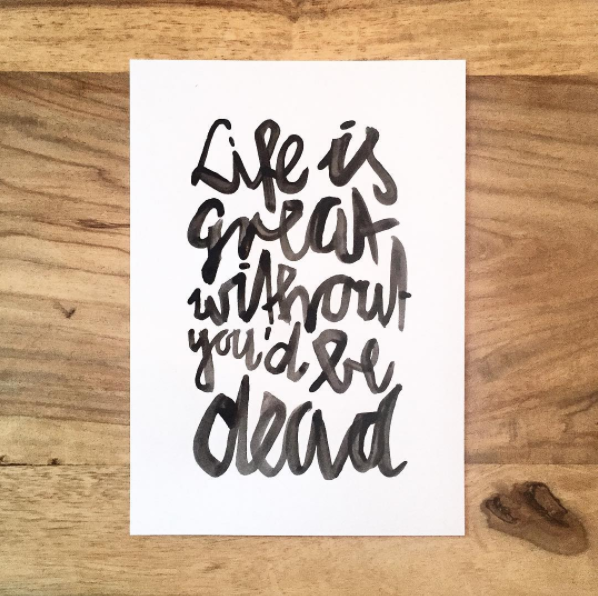 Life is
great
without
you'd be
dead